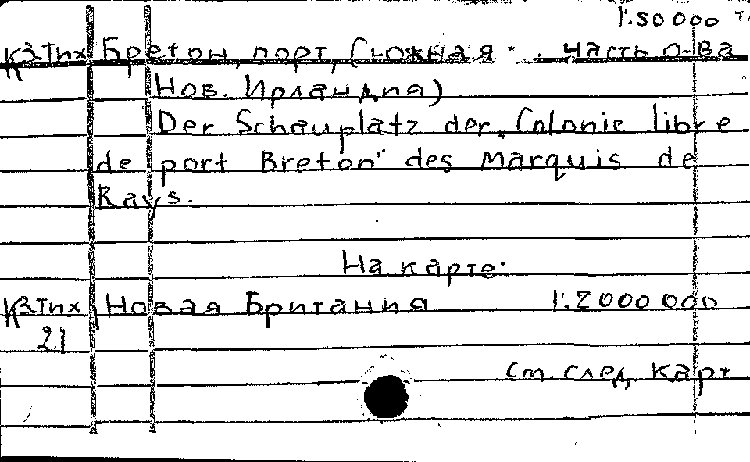 1:50 000
К3Тих Бретон, порт, (южная часть о-ва
Нов. Ирландия)
Der Schauplatz der „Colonie libre
de port Breton" des Marquis de
Rays.
На карте:
К3Тих Новая Британия 1:2 000 000
21
См. след. карт